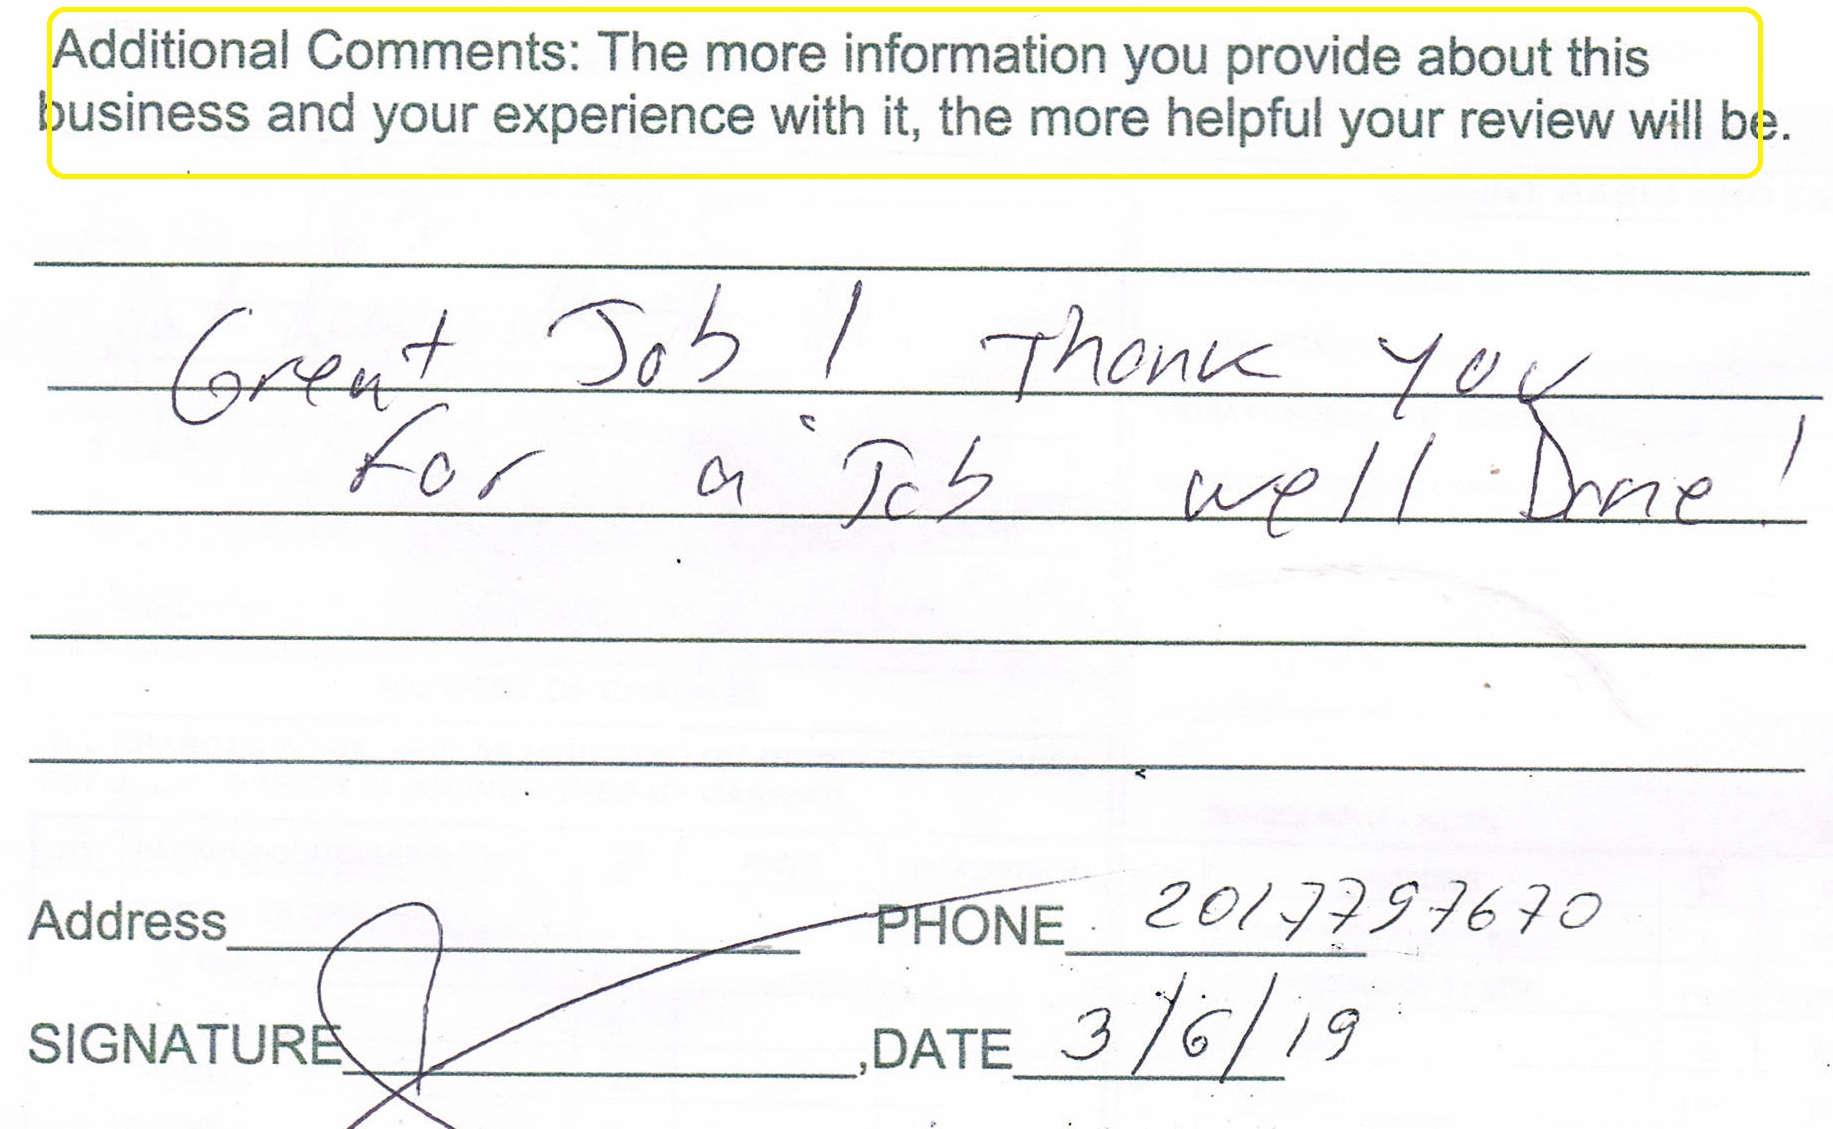 Additional Comments: The more information you provide about this
business and your experience with it, the more helpful your review will be.
Great Job! Thank you
for a Job well Done!
Address PHONE 2017797670
SIGNATURE ,DATE 3/6/19